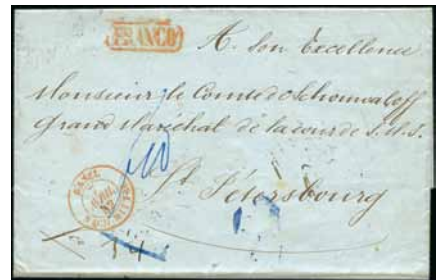 FRANCO
A Son Excellence
Monsieur le Comte de Schouwaloff
Grand Maréchal de la cour de S.M.S.
St Pétersbourg
BASEL